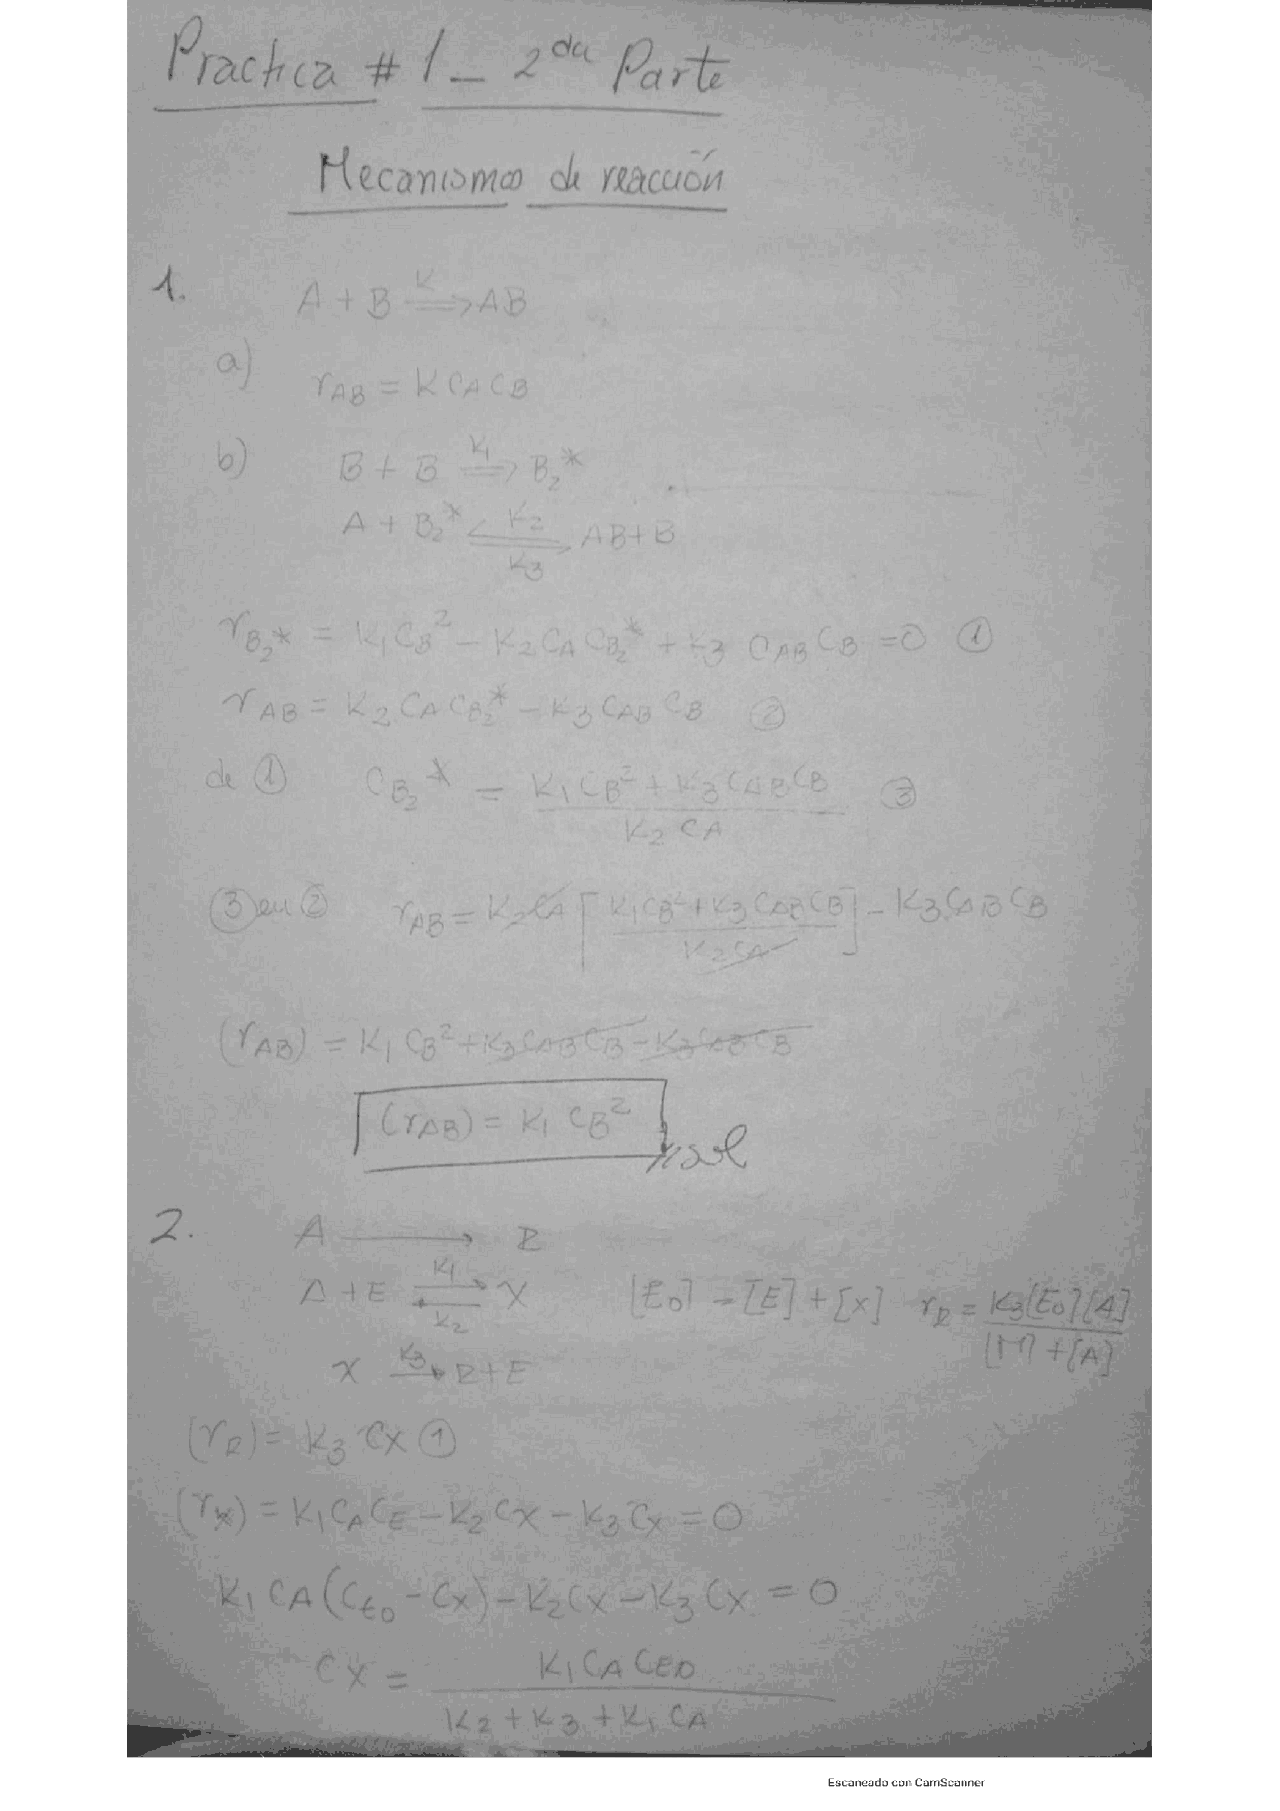 Practica # 1 - 2da Parte
Mecanismos de reacción
1. A + B ⇒ᴷ AB
a) rAB = K CA CB
b) B + B ⇒ᴷ¹ B2*
A + B2* ⇌ AB + B
K2
K3
rB2* = K1 CB² - K2 CA CB2* + K3 CAB CB = 0 ①
rAB = K2 CA CB2* - K3 CAB CB ②
de ① CB2* = (K1 CB² + K3 CAB CB) / (K2 CA) ③
③ en ② rAB = K2 CA [(K1 CB² + K3 CAB CB) / (K2 CA)] - K3 CAB CB
(rAB) = K1 CB² + K3 CAB CB - K3 CAB CB
(rAB) = K1 CB²
2. A → R
A + E ⇌ X [E0] = [E] + [X] rR = K3[E0][A] / [M] + [A]
K1
K2
X →ᴷ³ R + E
(rR) = K3 CX ①
(rX) = K1 CA CE - K2 CX - K3 CX = 0
K1 CA (CE0 - CX) - K2 CX - K3 CX = 0
CX = K1 CA CE0 / K2 + K3 + K1 CA
Escaneado con CamScanner